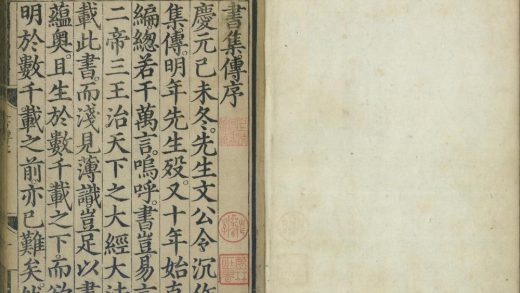 書集傳序
慶元己未冬。先生文公令沉作
集傳。明年先生歿。又十年始克
編總若干萬言。嗚呼。書豈易言
二帝三王治天下之大經大法
載此書。而淺見薄識豈足以盡
蘊奧。且生於數千載之下而欲
明於數千載之前亦已難矣然